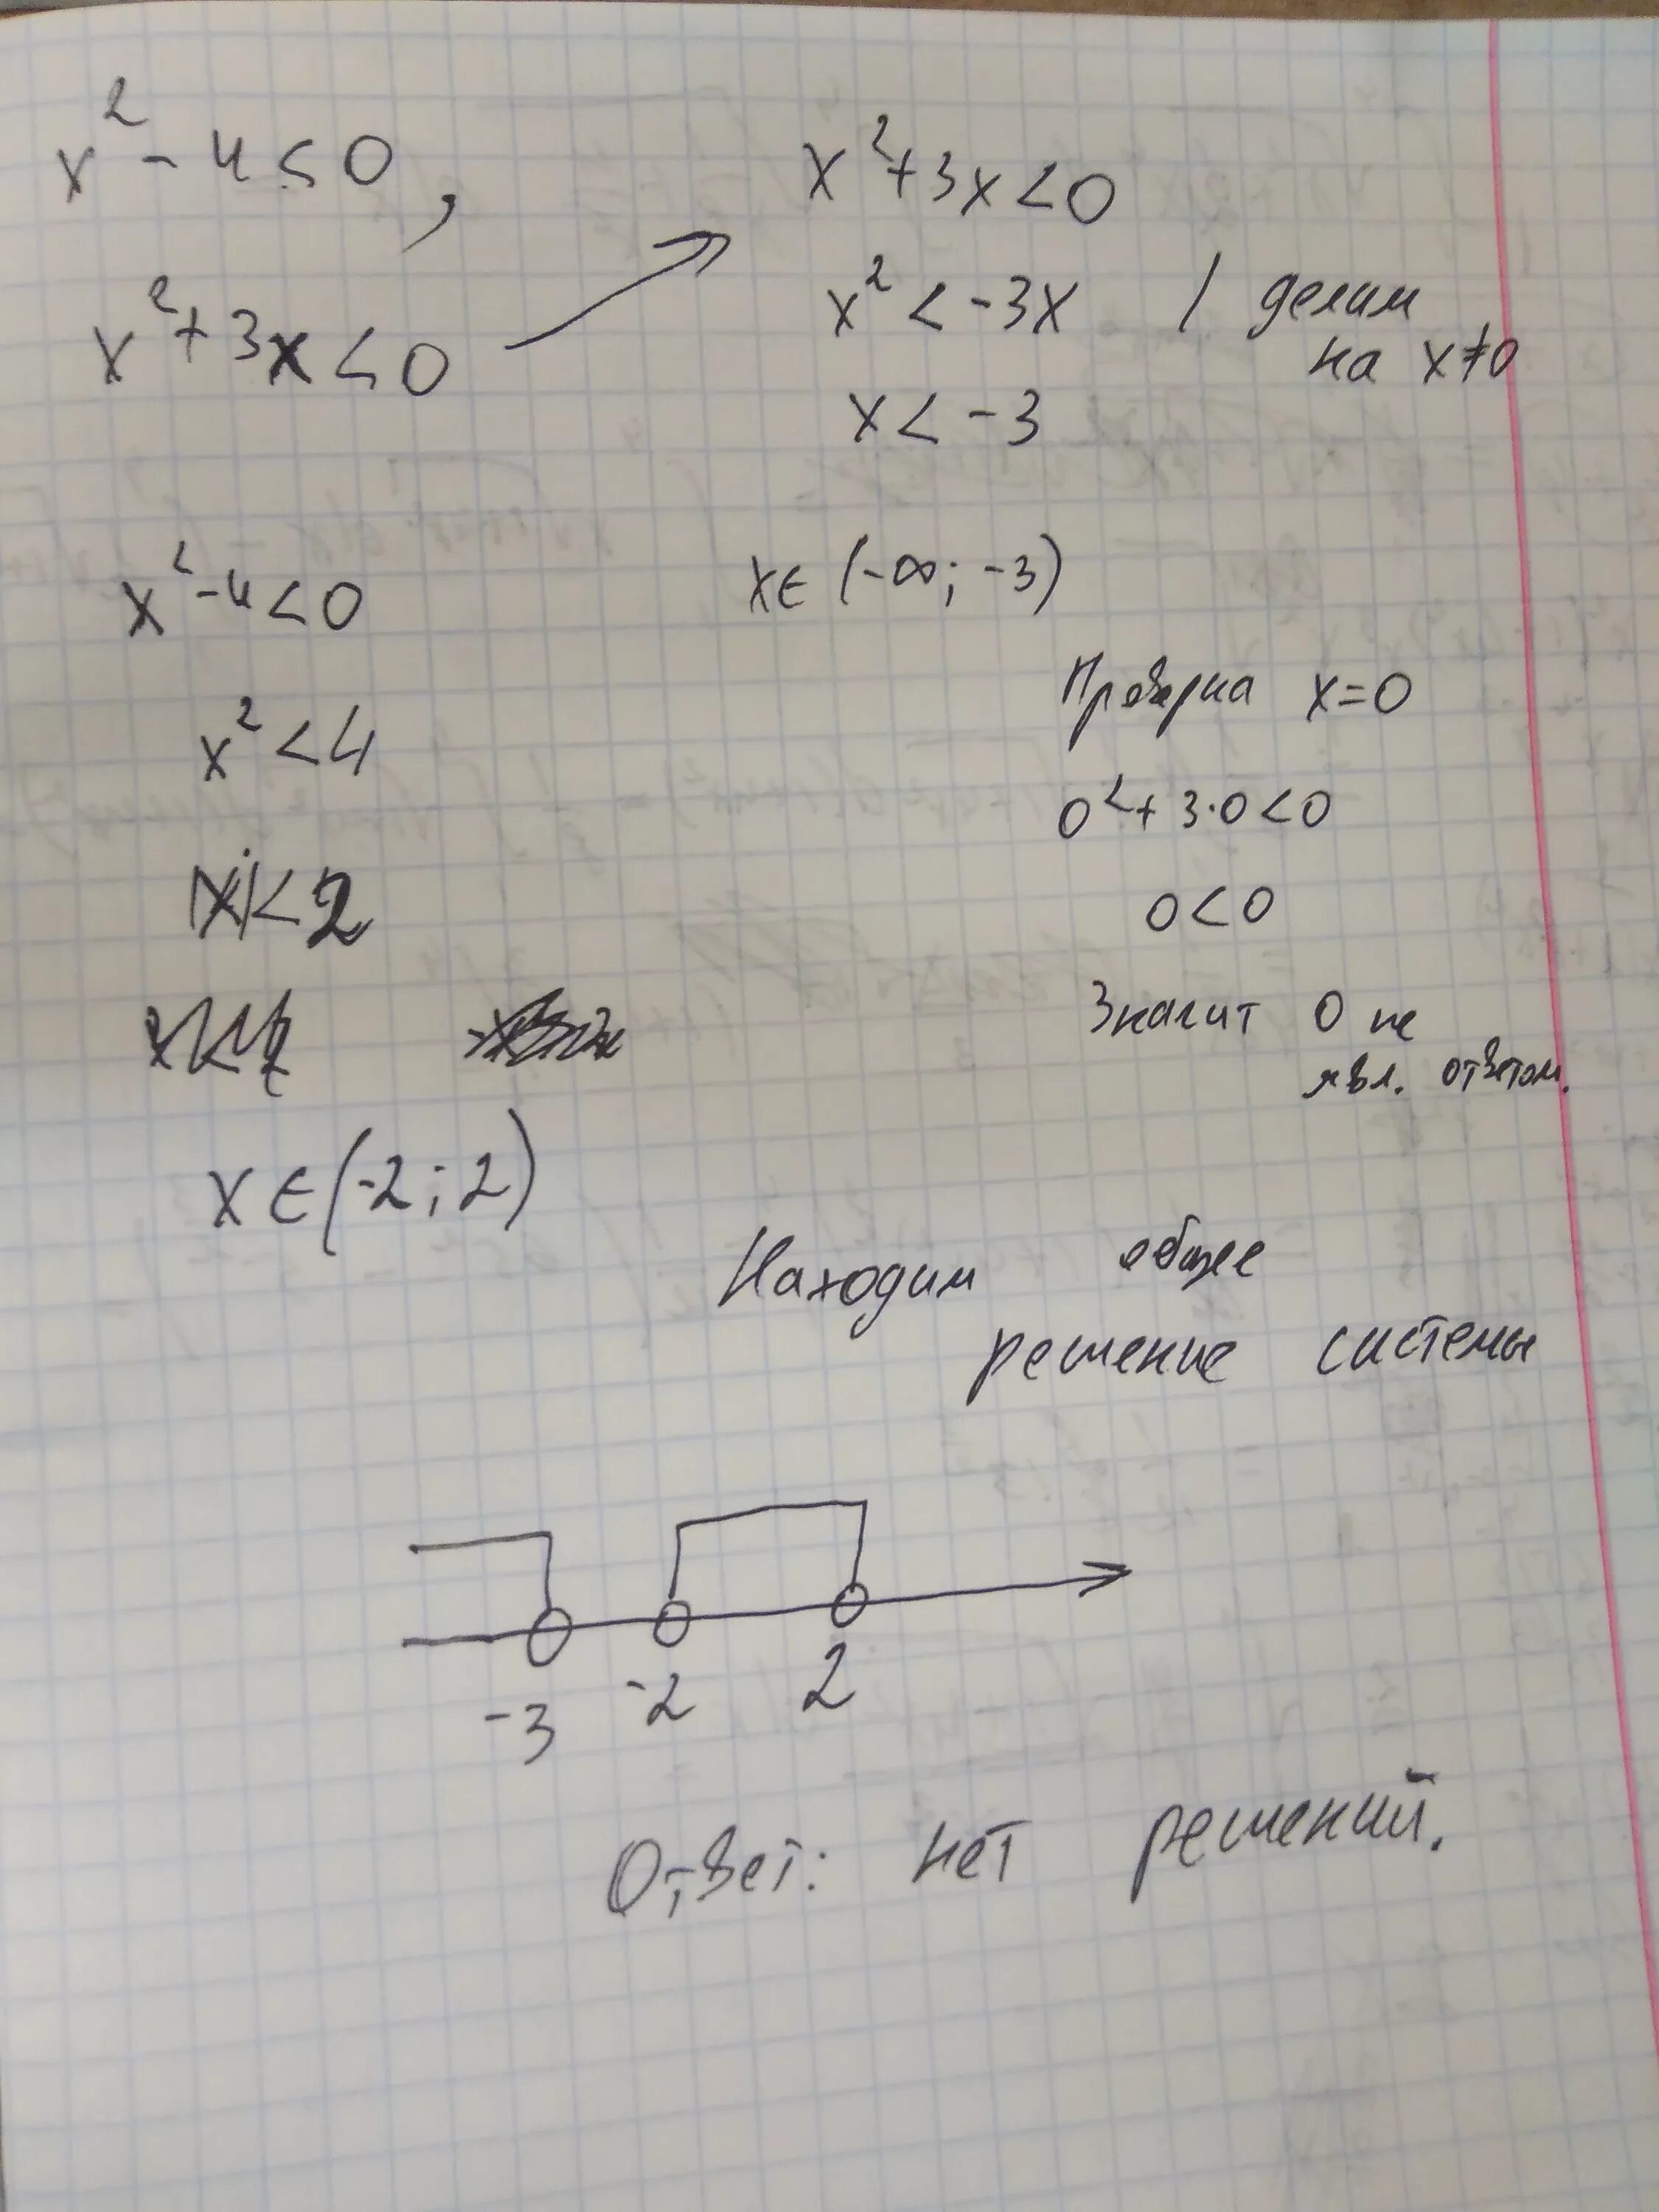 x² - 4 < 0,
x² + 3x < 0
x² + 3x < 0
x² < -3x / делим
на x≠0
x < -3
x ∈ (-∞; -3)
Проверка x=0
0² + 3·0 < 0
0 < 0
Значит 0 не
явл. ответом.
x² - 4 < 0
x² < 4
|x| < 2
x ∈ (-2; 2)
Находим общее
решение системы
-3 -2 2
Ответ: нет решений.